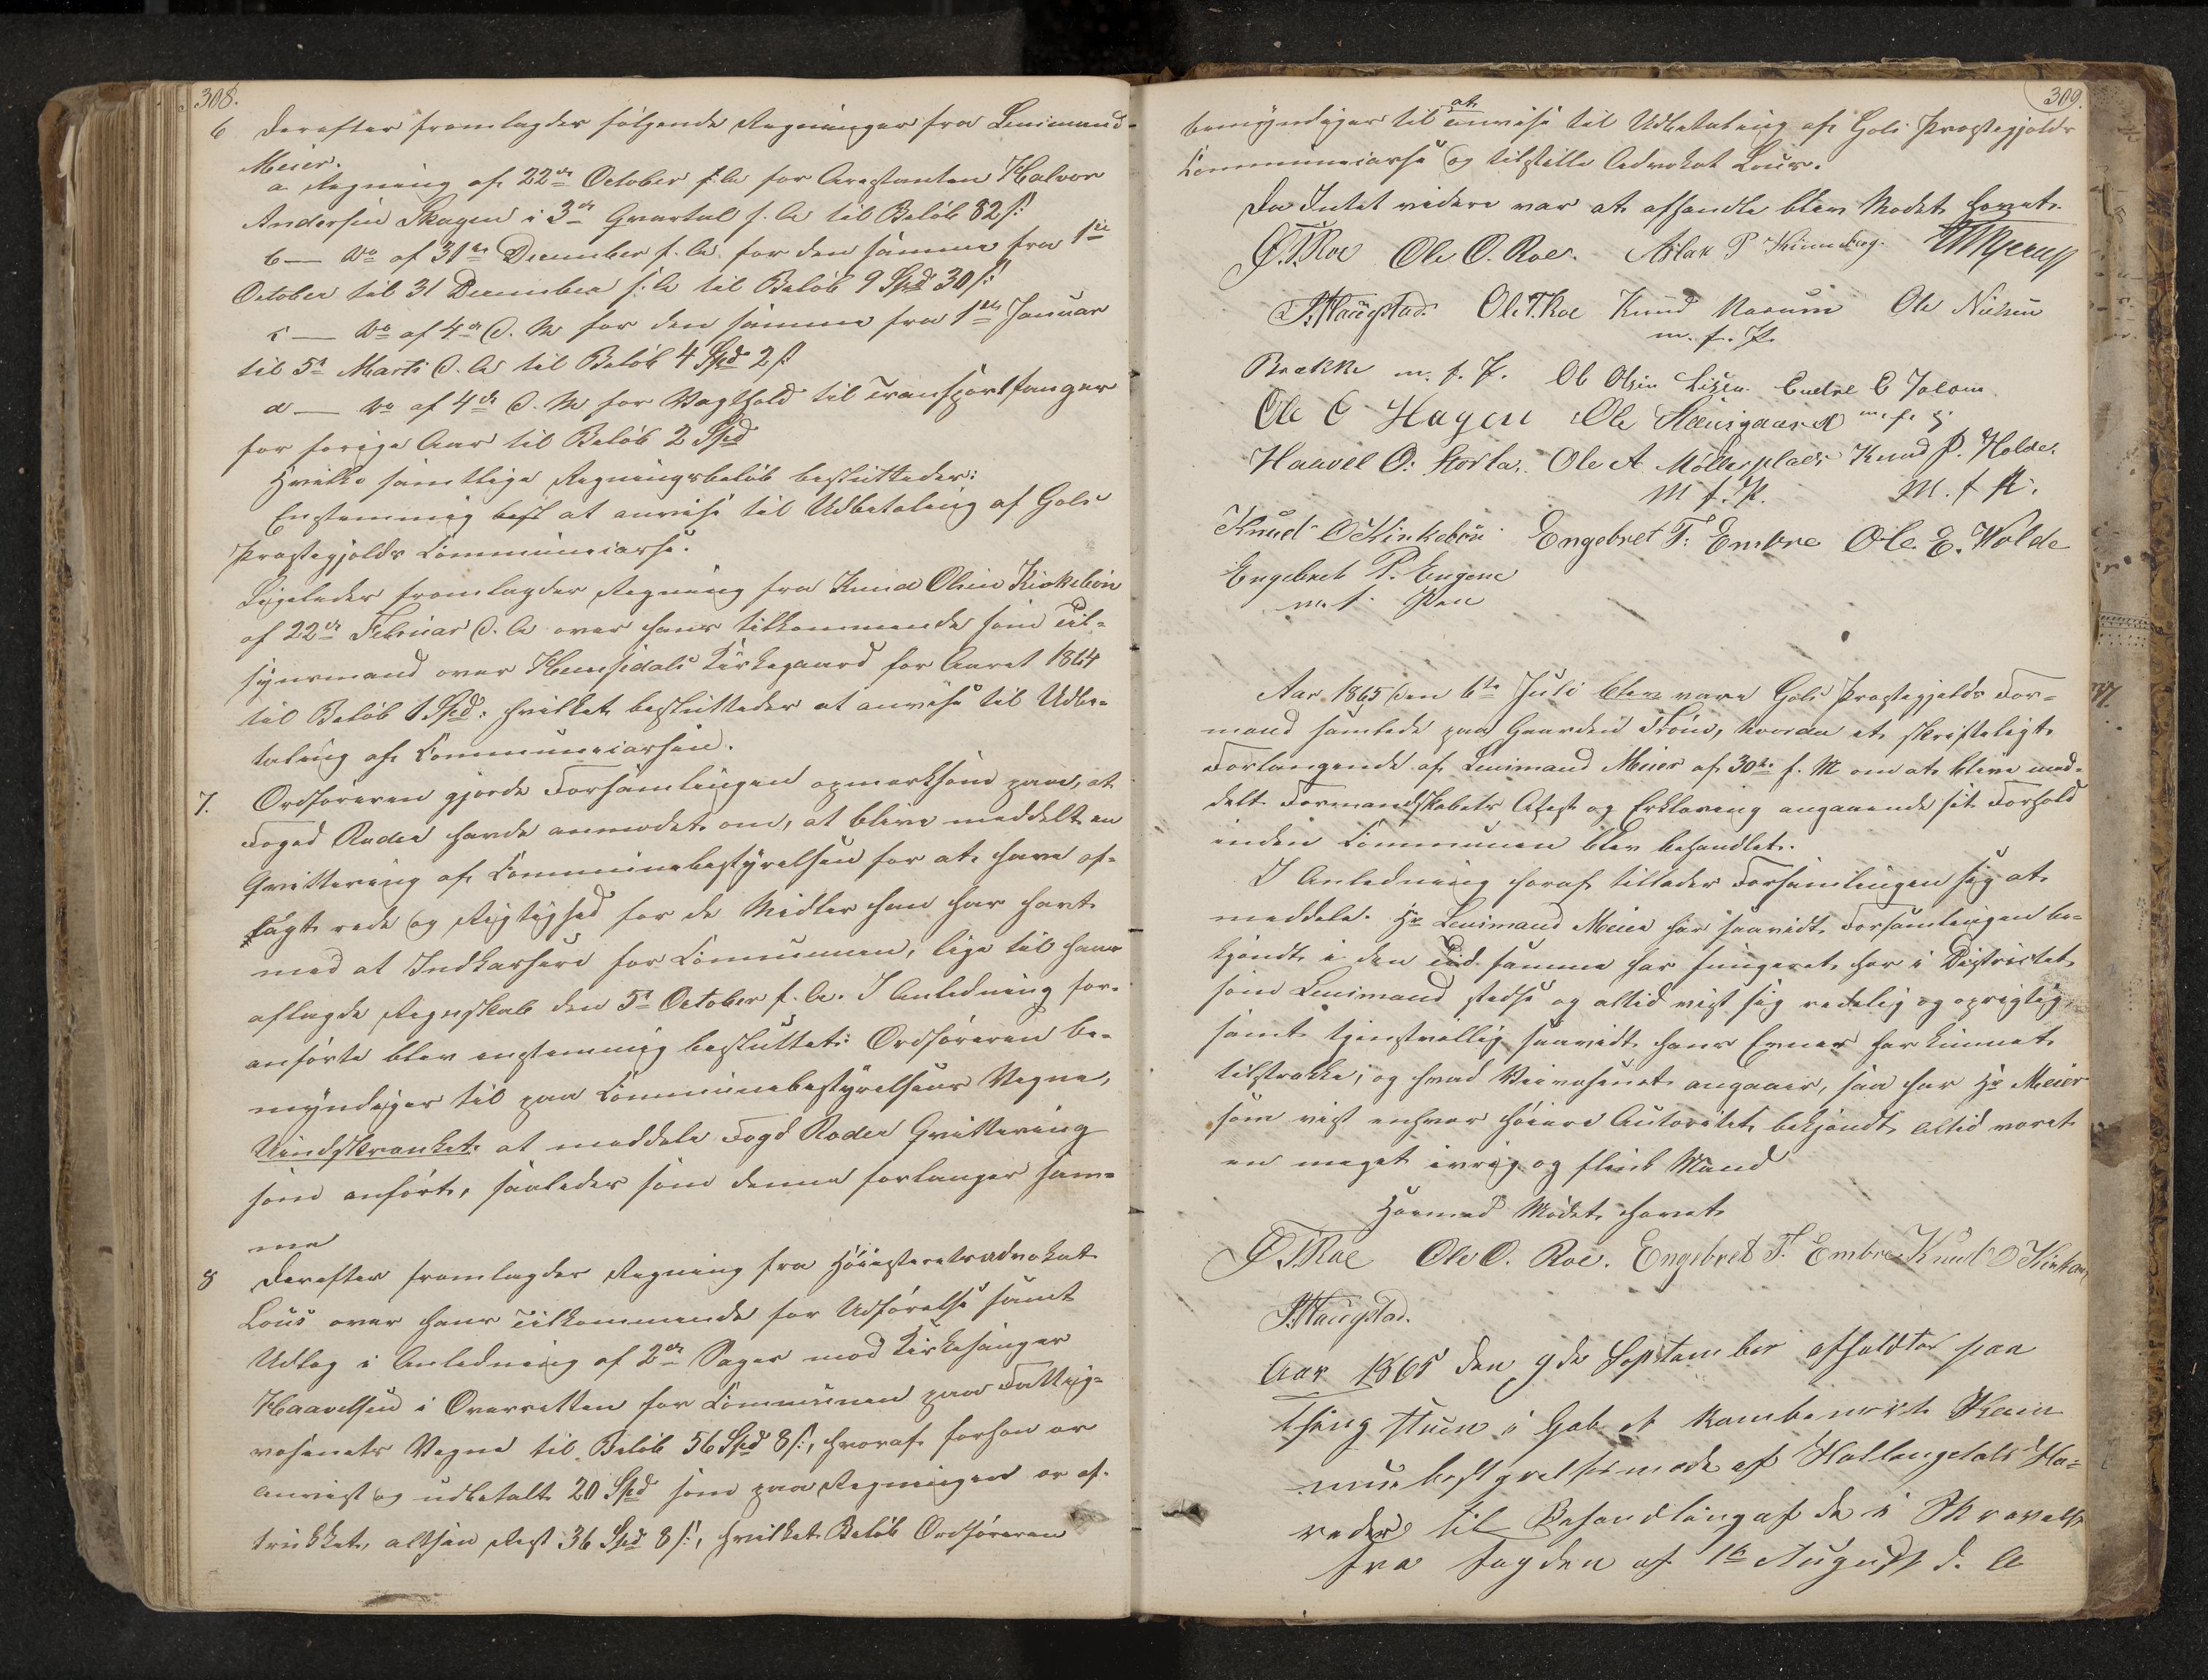 308.
6 Derefter fremlagdes følgende Regninger fra Lensmand
Meier.
a Regning af 22de October f. A. for Arrestanten Halvor
Andersen Skagen i 3de Qvartal f. A. til Beløb 82 s:
b — Do af 31te December f. A. for den samme fra 1ste
October til 31 December f. A. til Beløb 9 Spd 30 s:
c — Do af 4de d. M. for den samme fra 1ste Januar
til 5te Marts d. A. til Beløb 4 Spd 2 s:
d — Do af 4de d. M. for Vagthold til Transportfanger
for forige Aar til Beløb 2 Spd
Hvilke samtlige Regningsbeløb besluttedes:
Enstemmig at anvise til Udbetaling af Gols
Præstegjelds Communecasse.
Ligeledes fremlagdes Regning fra Knud Olsen Kirkebøen
af 22de Februar d. A. over hans tilkommende som Til-
synsmand over Hemsedals Kirkegaard for Aaret 1864
til Beløb 1 Spd: hvilket besluttedes at anvise til Udbe-
taling af Communecassen.
7. Ordføreren gjorde Forsamlingen opmærksom paa, at
Foged Rode havde anmodet om, at blive meddelt en
Qvittering af Communebestyrelsen for at have af-
lagt rede og Rigtighed for de Midler han har havt
med at Indkassere for Communen, lige til hans
aflagde Regnskab den 5te October f. A. I Anledning for-
anførte blev enstemmig besluttet: Ordføreren be-
myndiges til paa Communebestyrelsens Vegne,
Uindskrænket at meddele Fogd Rode Qvittering
som anført, saaledes som denne forlanger sam-
me
8 Derefter fremlagdes Regning fra Høiesteretsadvokat
Lous over hans Tilkommende for Udførelse samt
Udlæg i Anledning af 2de Sager mod Kirkesanger
Haavelsen i Overretten for Communen paa Fattig-
væsenets Vegne til Beløb 56 Spd 8 s:, hvoraf forhen er
anvist og udbetalt 20 Spd som paa Regningen er af-
trukket, altsaa Rest 36 Spd 8 s:, hvilket Beløb Ordføreren
309.
bemyndiges til at anvise til Udbetaling af Gols Præstegjelds
Communecasse og tilstille Advokat Lous.
Da Intet videre var at afhandle blev Mødet hævet.
O. T. Roe Ole O. Roe. Aslak P
P. Haugstad. Ole T. Roe Knud Ole Nielsen
m. f. P.
Brække m. f. P. Ole Olsen Endre E
Ole O Hagen Ole m. f. P.
Haavel O. Storla. Ole A Møllerplads Knud P. Holde.
M f. P. M. f P.
Knud O Kirkebøn Engebret T. Embre Ole E. Wolde
Engebret P. Eugene
m. f. Pen
Aar 1865 den 6te Juli blev vare Gols Præstegjelds For-
mænd samlede paa Gaarden hvorda et skrifteligt
Forlangende af Lensmand Meier af 30te f. M om at blive med-
delt Formandskabets Attest og Erklæring angaaende sit Forhold
inden Communen blev behandlet.
I Anledning heraf tillader Forsamlingen sig at
meddele: Hr Lensmand Meier har saavidt Forsamlingen be-
kjendt i den Tid samme har fungeret her i Districtet
som Lensmand stedse og altid vist sig redelig og oprigtig,
samt tjenstvillig saavidt hans Evner har kunnet
tilstrække; og hvad Veivæsenet angaaer, saa har Hr Meier
som vist enhver høiere Autoritet bekjendt altid været
en meget ivrig og flink Mand
Hermed Mødet hævet
O. T. Roe Ole O. Roe. Engebret T. Embre Knud O Kirke
P. Haugstad.
Aar 1865 den 9de September afholdtes paa
Thingstuen i Gol et Kombineret Kom
munebestyrelsesmøde af Hallingdals He-
reder til Behandling af de i Skrivelse
fra Fogden af 1te August d. A